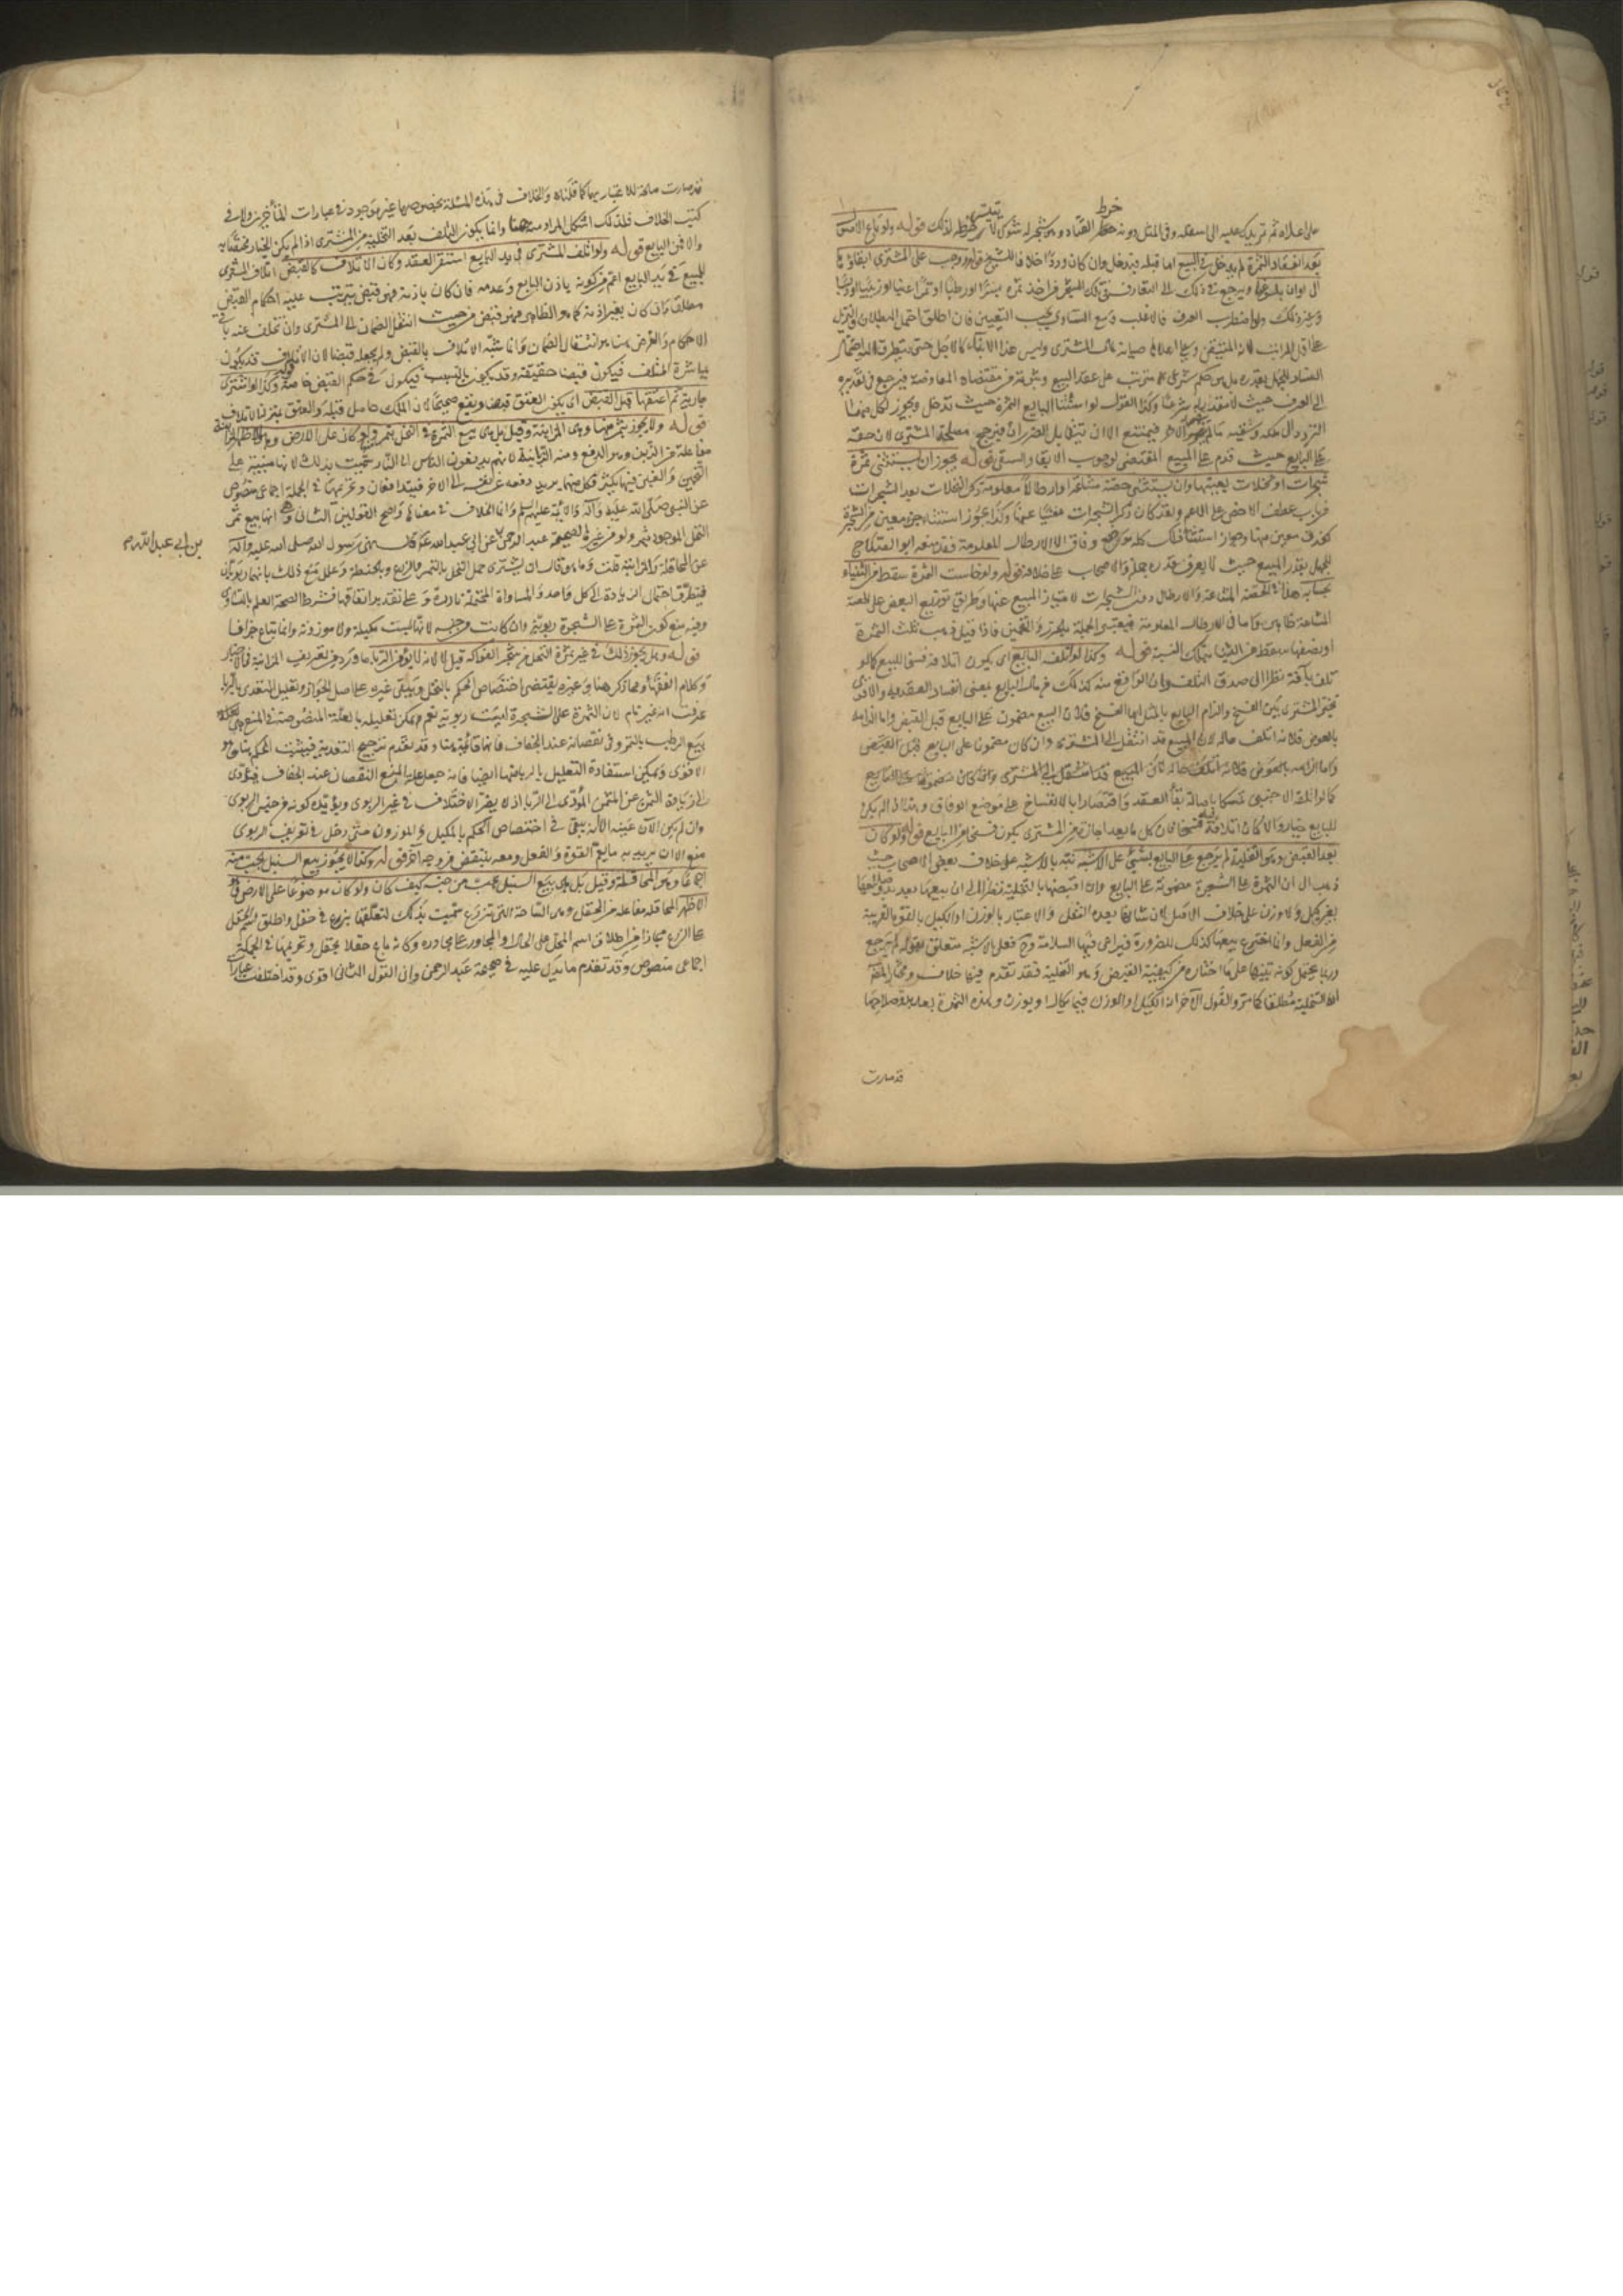 على اعلاه ثم تمر يدك عليه الى اسفله وفى المثل دونه خرط القتاد وهو شجر له شوك لا يتيسر خرطه لذلك قوله ولو باع الاصول
بعد انعقاد الثمرة لم يدخل فى البيع اما قبله فيدخل وان كان وردا خلافا للشيخ قوله ووجب على المشترى ابقاؤها
الى اوان بلوغها ويرجع فى ذلك الى التعارف فى تلك الشجر فما اخذ ثمره بسرا او رطبا او تمرا او عنبا او زبيبا
وغير ذلك ولو اضطرب العرف فالاغلب ومع التساوى يجب التعيين فان اطلق احتمل البطلان والتنزيل
على اقل المراتب لانه المتيقن وعلى اعلاها صيانة لمال المشترى وليس هذا الابقاء كالاجل حتى يتطرق اليه احتمال
الفساد للجهل بقدره بل هو حكم شرعى مترتب على عقد البيع ومن مقتضاه المعاوضة فيرجع فى تقديره
الى العرف حيث لا مقدر له شرعا وكذا القول لو استثنى البايع الثمرة حيث تدخل ويجوز لكل منهما
التردد الى ملكه وسقيه ما لم يتضرر الاخر فيمتنع الا ان يتقابل الضرران فيرجح مصلحة المشترى لان حقه
على البايع حيث قدم على البيع المقتضى لوجوب الابقاء والسقى قوله يجوز ان يستثنى ثمرة
شجرات او نخلات بعينها وان يستثنى حصة مشاعة او ارطالا معلومة ذكر النخلات بعد الشجرات
من باب عطف الاخص على الاعم ولقد كان ذكر الشجرات مغنيا عنها وكذا يجوز استثناء جزء معين من الشجرة
كعذق معين منها وجواز استثناء ذلك كله موضع وفاق الا الارطال المعلومة فقد منعه ابو الصلاح
للجهل بقدر المبيع حيث لا يعرف قدره جملة والاصحاب على خلافه قوله ولو خاست الثمرة سقط من الثنيا
بحسابه هذا فى الحصة المشاعة والارطال دون الشجرات لامتياز المبيع عنها وطريق توزيع البعض على الحصة
المشاعة ظاهر واما فى الارطال المعلومة فيعتبر الجملة بالخرص والتخمين فاذا قيل ذهب ثلث الثمرة
او نصفها سقط من الثنيا بتلك النسبة قوله وكذا لو اتلفه البايع اى يكون اتلافه فسخا للبيع كما لو
تلف بآفة نظرا الى صدق التلف وان الواقع منه كذلك من مال البايع بمعنى انفساد العقد به والاقوى
تخير المشترى بين الفسخ والزام البايع بالمثل اما الفسخ فلان المبيع مضمون على البايع قبل القبض واما الزامه
بالعوض فلانه اتلف ماله لان المبيع قد انتقل الى المشترى وان كان مضمونا على البايع قبل القبض
واما الزامه بالعوض فلانه اتلف ماله لان المبيع قد انتقل الى المشترى وان كان مضمونا على البايع
كما لو اتلفه الاجنبى تمسكا باصالة بقاء العقد واقتصارا بالانفساخ على موضع الوفاق وهذا اذا لم يكن
للبايع خيار والا كان اتلافه فسخا لان كل ما يعد اجازة من المشترى يكون فسخا من البايع قوله ولو كان
بعد القبض وهو التخلية لم يرجع على البايع بشىء على الاشبه نبه بالاشبه على خلاف بعض الاصحاب حيث
ذهب الى ان الثمرة على الشجرة مضمونة على البايع وان اقبضها بالتخلية نظرا الى ان بيعها بعد بدو صلاحها
بغير كيل ولا وزن على خلاف الاصل لان شانها بعده النقل والاعتبار بالوزن او الكيل بالقوة القريبة
من الفعل وانما اختير بيعها كذلك للضرورة فيراعى فيها السلامة وح فعلى الاشبه متعلق بقوله لم يرجع
وربما يحتمل كونه تنبيها على ما اختاره من كيفية القبض وهو التخلية فقد تقدم فيها خلاف ومختار المصنف
انه التخلية مطلقا كما مر والقول الآخر انه الكيل او الوزن فيما يكال او يوزن وهذه الثمرة بعد بدو صلاحها
قد صارت
قد صارت صالحة للاعتبار بهما كما قلناه والخلاف فى هذه المسئلة بخصوصها غير موجود فى عبارات المتأخرين ولا فى
كتب الخلاف فلذلك اشكل المراد منه هنا وانما يكون التلف بعد التخلية من المشترى اذا لم يكن الخيار مختصا به
والا فمن البايع قوله ولو اتلفه المشترى فى يد البايع استقر العقد وكان الاتلاف كالقبض اتلاف المشترى
للمبيع فى يد البايع اعم من كونه باذن البايع وعدمه فان كان باذنه فهو قبض يترتب عليه احكام القبض
مطلقا وان كان بغير اذنه كما هو الظاهر فهو قبض من حيث انتقال الضمان الى المشترى وان تخلف عنه باقى
الاحكام والغرض هنا هو انتقال الضمان وانما شبه الاتلاف بالقبض ولم يجعله قبضا لان الاتلاف قد يكون
بمباشرة المتلف فيكون قبضا حقيقة وقد يكون بالتسبيب فيكون فى حكم القبض خاصة قوله وكذا لو اشترى
جارية ثم اعتقها قبل القبض اى يكون العتق قبضا ويقع صحيحا لان الملك حاصل قبله والعتق بمنزلة الاتلاف
قوله ولا يجوز بثمر منها وهى المزابنة وقيل بل هى بيع الثمرة فى النخل بتمر ولو كان على الارض وهو الاظهر المزابنة
مفاعلة من الزبن وهو الدفع ومنه الزبانية لانهم يدفعون الناس الى النار سميت بذلك لانها مبنية على
التخمين والغبن فيها يكثر فكل منهما يريد دفعه عن نفسه الى الاخر فيتدافعان وتحريمها فى الجملة اجماعى منصوص
عن النبى صلى الله عليه وآله والائمة عليهم السلم وانما الخلاف فى معناها واصح القولين الثانى وهى انها بيع ثمر
النخل الموجود بتمر ولو من غيره لصحيحة عبد الرحمن عن ابى عبد الله ع قال نهى رسول الله صلى الله عليه وآله
بن ابى عبد الله
عن المحاقلة والمزابنة قلت وما هو قال ان يشترى حمل النخل بالتمر والزرع بالحنطة وعلل منع ذلك بانهما ربويان
فيتطرق احتمال الزيادة الى كل واحد والمساواة المحتملة نادرة وعلى تقدير اتفاقها فشرط الصحة العلم بالتساوى
وفيه منع كون الثمرة على الشجرة ربوية وان كانت من جنسه لانها ليست مكيلة ولا موزونة وانما تباع جزافا
قوله وهل يجوز ذلك فى غير ثمرة النخل من شجر الفواكه قيل لا لانه لا يؤمن الربا ما ورد من تعريف المزابنة فى الاخبار
وكلام الفقهاء ومما ذكر هنا وغيره يقتضى اختصاص الحكم بالنخل ويبقى غيره على اصل الجواز وتعليل المتعدى بالربا
عرفت انه غير تام لان الثمرة على الشجرة ليست ربوية نعم يمكن تعليله بالعلة المنصوصة فى المنع من
بيع الرطب بالتمر وهى نقصانه عند الجفاف فانها قائمة هنا وقد تقدم ترجيح التعدية فيثبت الحكم هنا وهو
الاقوى ويمكن استفادة التعليل بالربا منها ايضا فانه جعل علة المنع النقصان عند الجفاف فيؤدى
الى زيادة الثمن عن المثمن المؤدى الى الربا اذ لا يضر الاختلاف فى غير الربوى ويؤيده كونه من جنس الربوى
وان لم يكن الآن عينه الا انه يبقى فى اختصاص الحكم بالمكيل والموزون حتى دخل فى تعريف الربوى
منع الا ان يريد به ما يعم القوة والفعل ومعه ينتقض من وجه آخر قوله وكذا لا يجوز بيع السنبل بحب منه
اجماعا وهو المحاقلة وقيل بل هى بيع السنبل بحب من جنسه كيف كان ولو كان موضوعا على الارض وهو
الاظهر المحاقلة مفاعلة من الحقل وهى الساحة التى تزرع سميت بذلك لتعلقها بزرع فى حقل واطلق اسم الحقل
على الزرع مجازا من اطلاق اسم المحل على الحال او المجاور على مجاوره وكانه باع حقلا بحقل وتحريمها فى الجملة
اجماعى منصوص وقد تقدم ما يدل عليه فى صحيحة عبد الرحمن وان القول الثانى اقوى وقد اختلفت عبارة